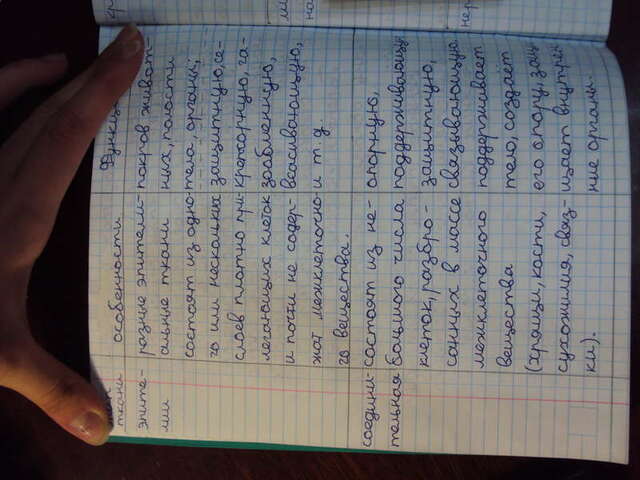 ткани
особенности
эпите-
лии
разные эпители-
альные ткани
состоят из одно
го или нескольких
слоев плотно при-
легающих клеток
и почти не содер-
жат межклеточно
го вещества.
покров живот-
ных, полости
тела органы;
защитную, се-
креторную, га-
зообменную,
всасывающую,
и т.д.
соедини-
тельная
состоят из не-
большого числа
клеток, разбро-
санных в массе
межклеточного
вещества
(хрящи, кости,
сухожилия, связ-
ки).
опорную,
поддерживающую
защитную,
связывающую
поддерживает
тело, создаёт
его опору, защ-
ищает внутрен
ние органы.